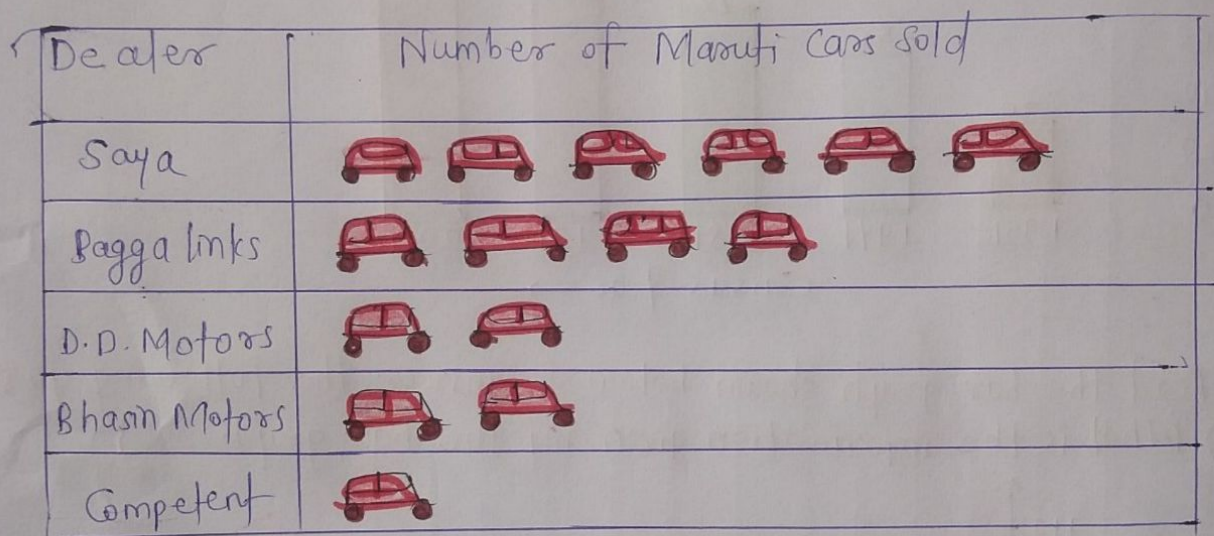 Dealer
Number of Maruti Cars sold
Saya
Bagga links
D.D. Motors
Bhasin Motors
Competent